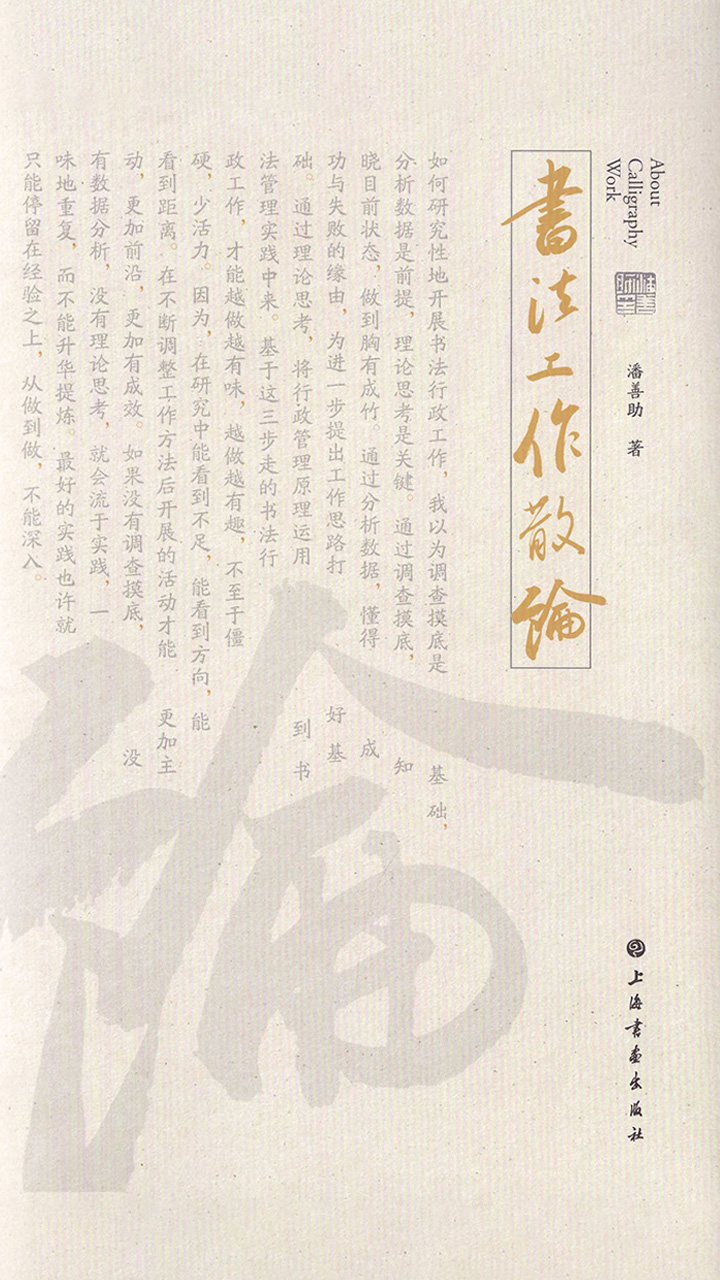 About
Calligraphy
Work
潘善助 著
上海書畫出版社
書法工作散論
如何研究性地开展书法行政工作，我以为调查摸底是基础，
分析数据是前提，理论思考是关键。通过调查摸底，知
晓目前状态，做到胸有成竹。通过分析数据，懂得成
功与失败的缘由，为进一步提出工作思路打好基
础。通过理论思考，将行政管理原理运用到书
法管理实践中来。基于这三步走的书法行
政工作，才能越做越有味，越做越有趣，不至于僵
硬，少活力。因为，在研究中能看到不足，能看到方向，能
看到距离。在不断调整工作方法后开展的活动才能更加主
动，更加前沿，更加有成效。如果没有调查摸底，没
有数据分析，没有理论思考，就会流于实践，一
味地重复，而不能升华提炼。最好的实践也许就
只能停留在经验之上，从做到做，不能深入。
論